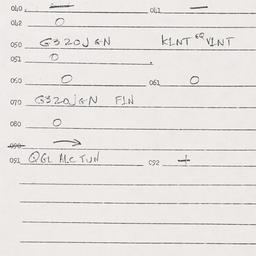 040. — 041 —
042 O
050 G320JGN KINT 69 VINT
051 O
050 O 061 O
070 G320JGN FIN
080 O
090 →
091 QGL MCTUN 092 +